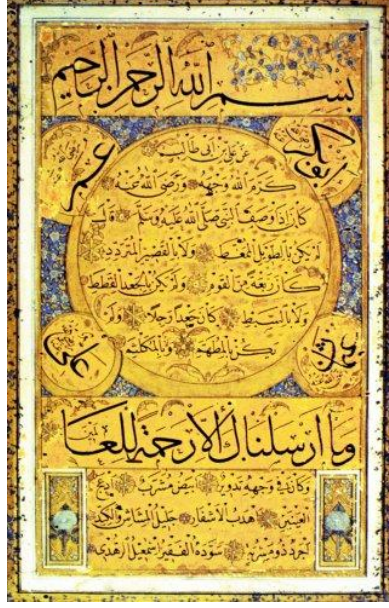 بسم الله الرحمن الرحيم
ابوبكر
عمر
عن علي بن ابي طالب
كرم الله وجهه ورضى الله عنه
كان اذا وصف النبي صلى الله عليه وسلم قال
لم يكن بالطويل الممغط ولا بالقصير المتردد
كان ربعة من القوم ولم يكن بالجعد القطط
ولا بالسبط كان جعدا رجلا ولم
يكن بالمطهم ولا بالمكلثم
عثمان
علي
وما ارسلناك الا رحمة للعالمين
وكان في وجهه تدوير ابيض مشرب ادعج
العينين اهدب الاشفار جليل المشاش والكتد
اجرد ذو مسربة سوده الفقير اسمعيل الزهدي